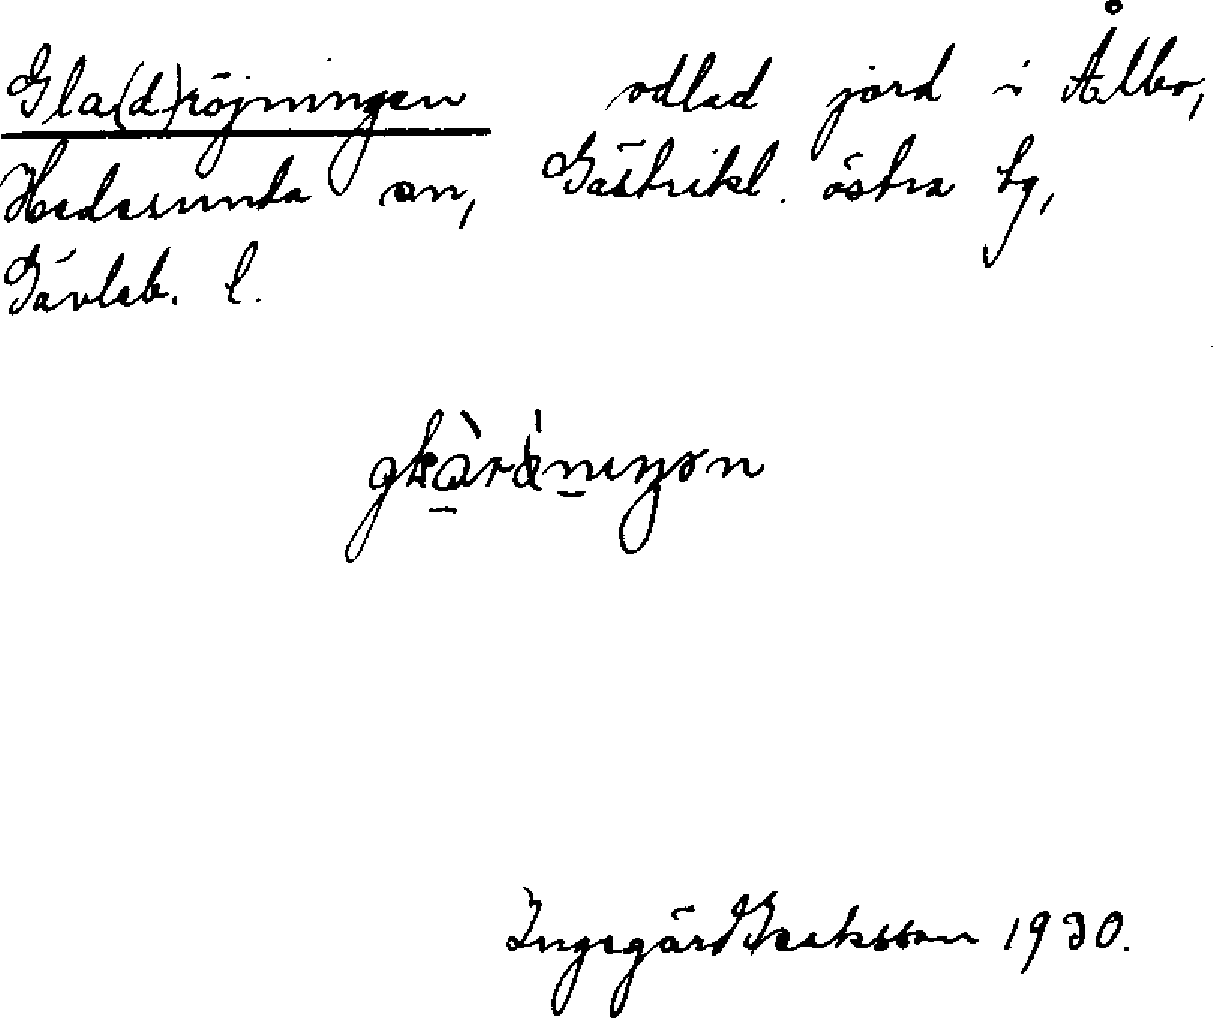 Gla(d)röjningen odlad jord i Ålbo,
Hedesunda sn, Gästrikl. östra tg,
Gävleb. l.
Ingegärd Isaksson 1930.